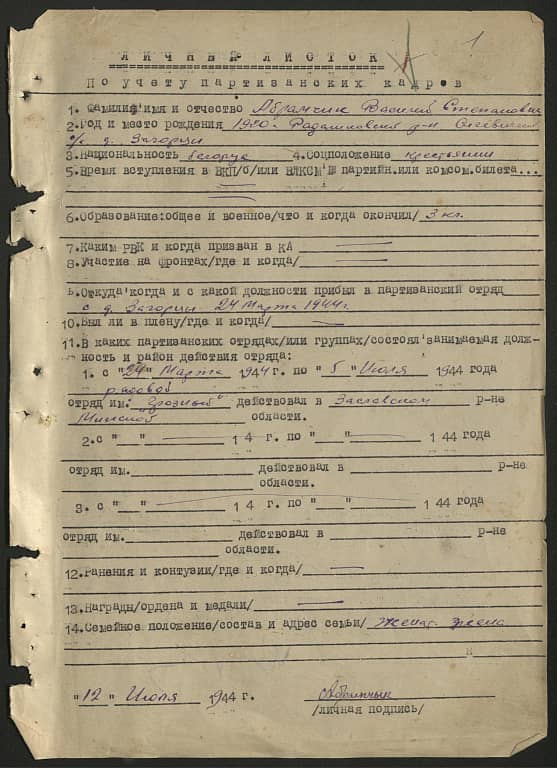 1
ЛИЧНЫЙ ЛИСТОК
По учету партизанских кадров
1. Фамилия, имя и отчество Абрамчик Василий Степанович
2. Год и место рождения 1900 Радашковский р-н
с/с д. Загорцы
3. Национальность белорус 4. Соцположение крестьянин
5. Время вступления в ВКП/б/или ВЛКСМ, № партийн.или комсом.билета...
6. Образование:общее и военное/что и когда окончил/ 3 кл.
7. Каким РВК и когда призван в КА
8. Участие на фронтах/где и когда/
Откуда, когда и с какой должности прибыл в партизанский отряд
с д. Загорцы 24 Марта 1944 г.
10. Был ли в плену/где и когда/
11. В каких партизанских отрядах/или группах/состоял, занимаемая долж-
ность и район действия отряда:
1. с "24" Марта 1944 г. по "5" Июля 1944 года
рядовой
отряд им. "Грозный" действовал в Заславском р-не
Минской области.
2. с "__" 1 4 г. по "__" 1 44 года
отряд им. действовал в р-не
области.
3. с "__" 1 4 г. по "__" 1 44 года
отряд им. действовал в р-не
области.
12. Ранения и контузии/где и когда/
13. Награды/ордена и медали/
14. Семейное положение/состав и адрес семьи/ женат. жена
"12" Июля 1944 г. Абрамчик
/личная подпись/